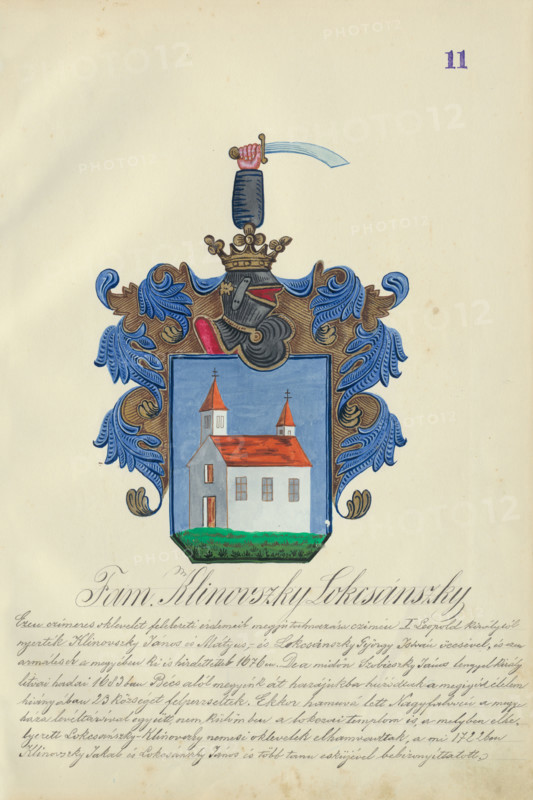 11
Fam. Klinovszky Lokcsánszky
Ezen czímeres oklevelet felebbeti érdemeik megjutalmazása czímén I. Leopold királytól
nyerték Klinovszky János és Mátyás, és Lokcsánszky György István öcsésivel, és ezen
armalesek a megyében ki is hirdettettek 1676ban. De a midőn Szobieszky János lengyel király
litvai hadai 1683ban Bécs alól megyénk át hazájukba húzódtak a megyéje élelem
hiányában 23 községét felperzselték. Ekkor hamuvá lett Nagyfalu és a megye
háza levéltárával együtt, nem különben a bokorai templom is, a melyben elhe-
lyezett Lokcsánszky-Klinovszky nemesi oklevelek elhamvadtak, a mi 1722ben
Klinovszky Jakab és Lokcsánszky János és több tanu esküjével bebizonyíttatott.
PHOTO12